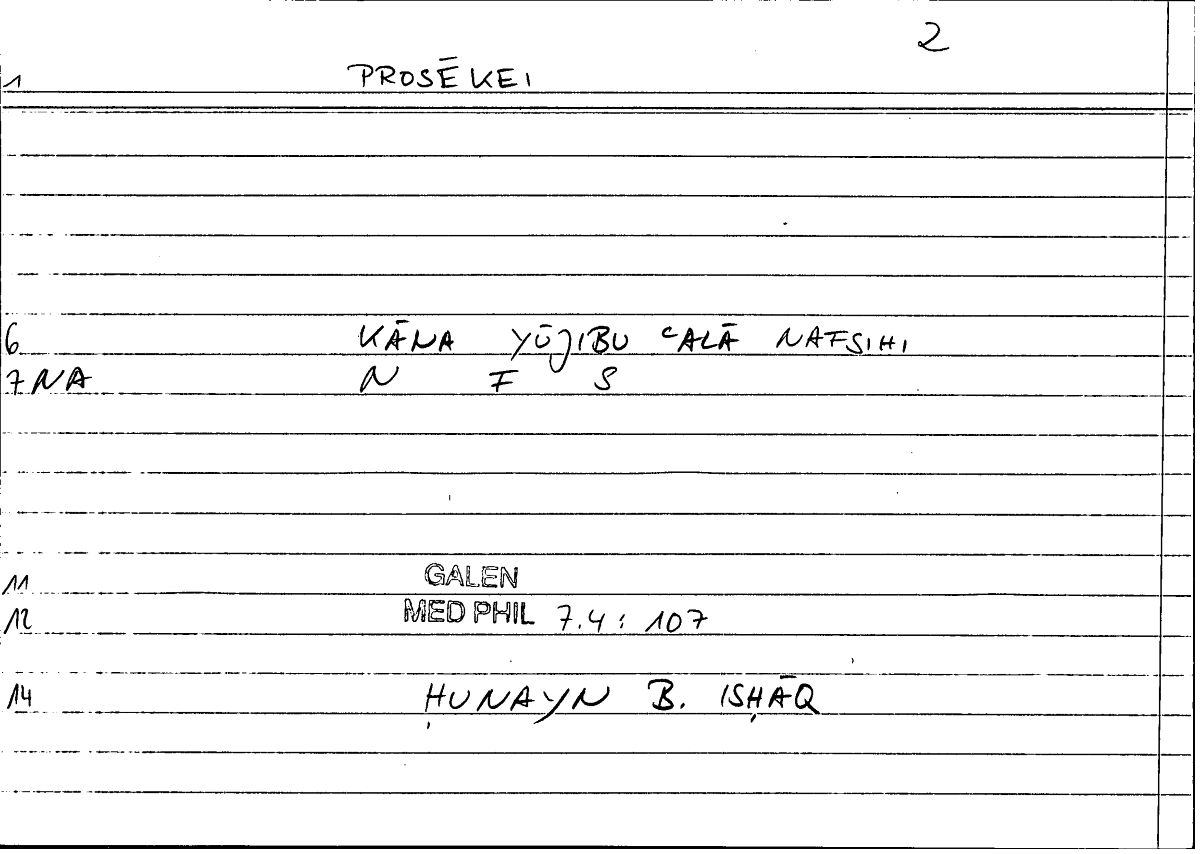 2
1 PROSĒKEI
6 KĀNA YŪJIBU ʿALĀ NAFSIHI
7 NA N F S
11 GALEN
12 MED PHIL 7.4 : 107
14 ḤUNAYN B. ISḤĀQ